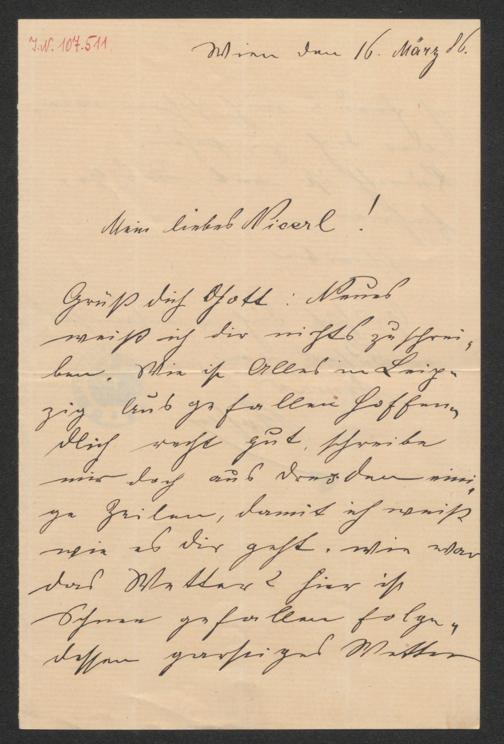 J.N. 107.511
Wien den 16. März 86.
Mein liebes Nicerl !
Grüß dich Gott : Neues
weiß ich dir nichts zu schrei-
ben. Wie ist Alles in Leip-
zig Ausgefallen hoffen-
dlich recht gut, schreibe
mir doch aus Dresden eini-
ge Zeilen, damit ich weiß
wie es dir geht. wie war
das Wetter? hier ist
Schnee gefallen folge-
dessen garstiges Wetter